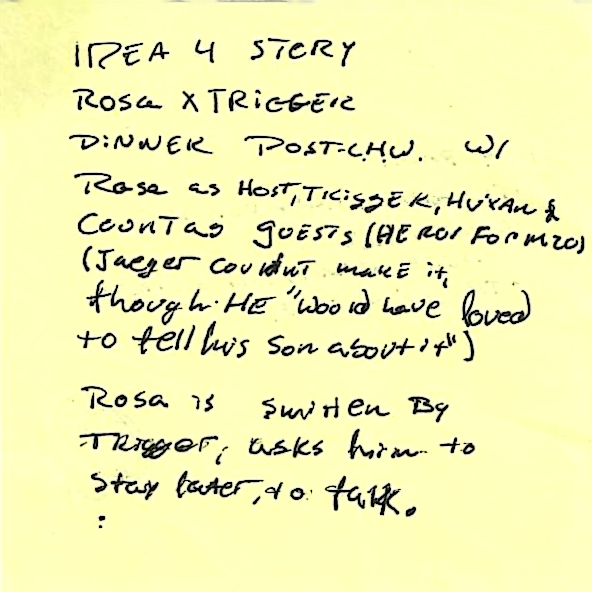 IDEA 4 STORY
Rosa X TRIGGER
DINNER POST-LHW. W/
Rosa as HOST, TRIGGER, HUXIAN &
COUNT as guests (HEROS FORM 20)
(Jaeger couldnt make it,
though HE "would have loved
to tell his son about it")
Rosa is smitten By
TRIGGER, asks him to
stay later, to talk.
: